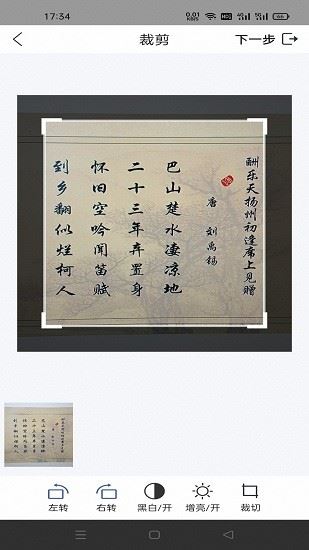 17:34
0.01
KB/S
裁剪
下一步
酬乐天扬州初逢席上见赠
唐 刘禹锡
巴山楚水凄凉地
二十三年弃置身
怀旧空吟闻笛赋
到乡翻似烂柯人
左转
右转
黑白/开
增亮/开
裁切